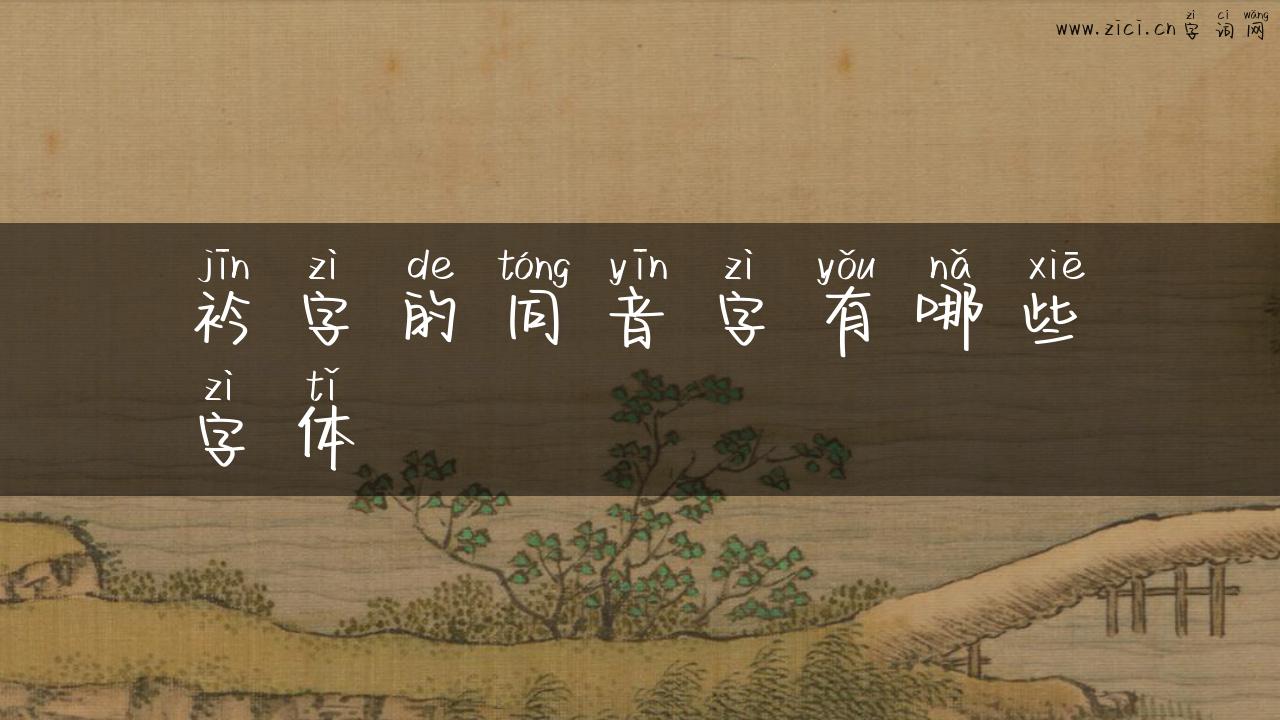 zì cí wǎng
www.zici.cn 字词网
jīn zì de tóng yīn zì yǒu nǎ xiē
衿字的同音字有哪些
zì tǐ
字体